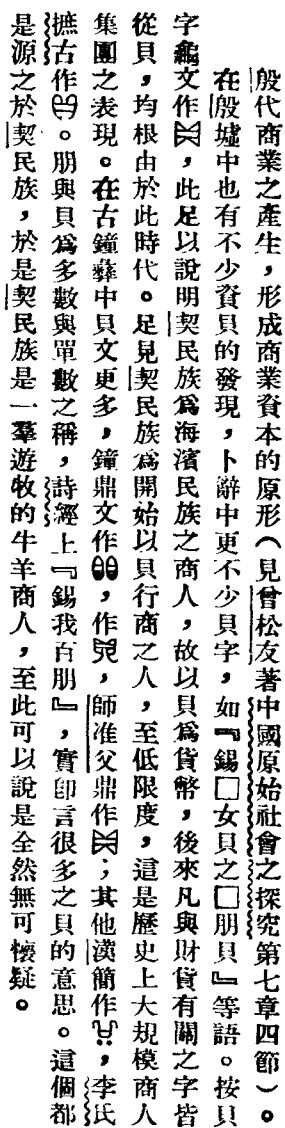 殷代商業之產生，形成商業資本的原形（見曾松友著中國原始社會之探究第七章四節）。
在殷墟中也有不少資貝的發現，卜辭中更不少貝字，如『錫□女貝之□朋貝』等語。按貝
字龜文作，此足以說明契民族爲海濱民族之商人，故以貝爲貨幣，後來凡與財貨有關之字皆
從貝，均根由於此時代。足見契民族爲開始以貝行商之人，至低限度，這是歷史上大規模商人
集團之表現。在古鐘彝中貝文更多，鐘鼎文作，作，師淮父鼎作；其他漢簡作，李氏
摭古作。朋與貝爲多數與單數之稱，詩經上『錫我百朋』，實卽言很多之貝的意思。這個都
是源之於契民族，於是契民族是一羣遊牧的牛羊商人，至此可以說是全然無可懷疑。